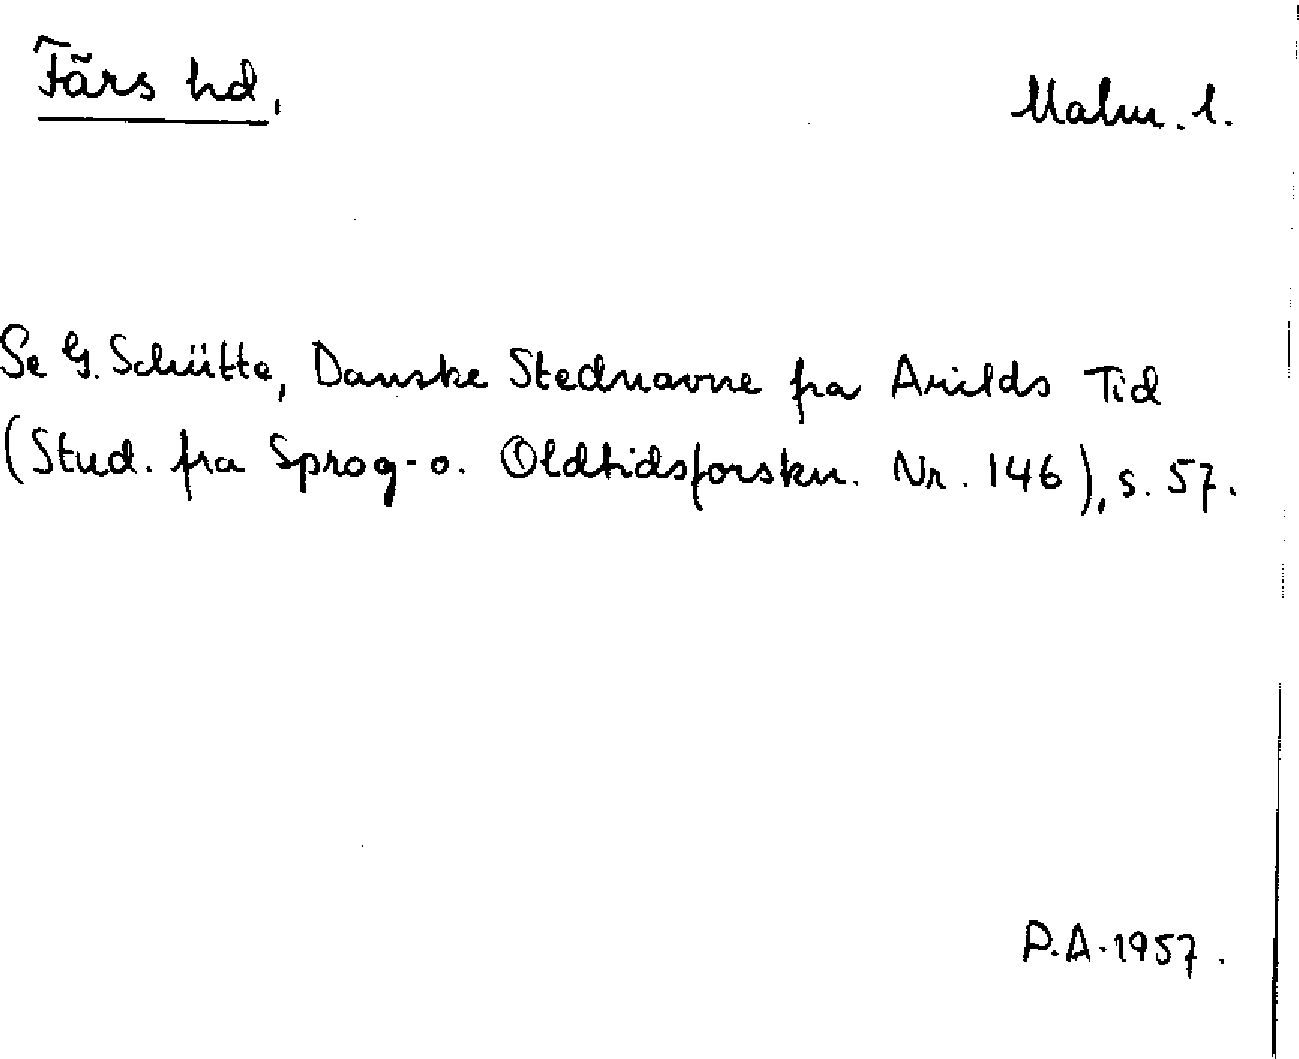 Färs hd,
Malm. l.
Se G. Schütte, Danske Stednavne fra Arilds Tid
(Stud. fra Sprog- o. Oldtidsforskn. Nr. 146), s. 57.
P.A. 1957.